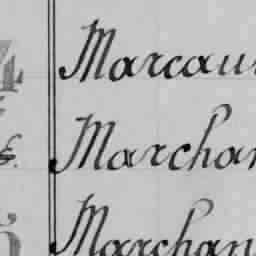 Marcau
Marchan
Marchan